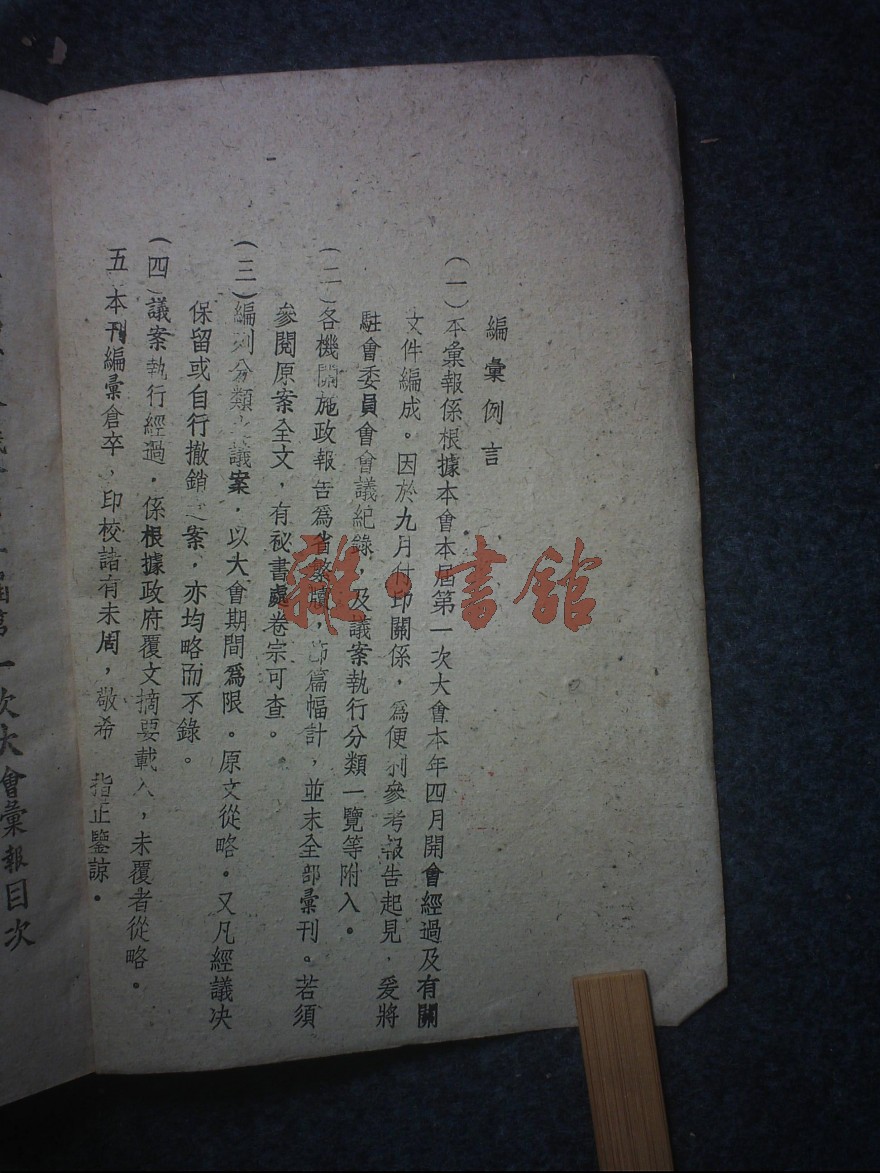 編彙例言
(一)本彙報係根據本會本屆第一次大會本年四月開會經過及有關
文件編成。因於九月付印關係,爲便利參考報告起見,爰將
駐會委員會會議紀錄,及議案執行分類一覽等附入。
(二)各機關施政報告爲省繁牘,節篇幅計,並未全部彙刊。若須
參閱原案全文,有祕書處卷宗可查。
(三)編列分類之議案,以大會期間爲限。原文從略。又凡經議決
保留或自行撤銷之案,亦均略而不錄。
(四)議案執行經過,係根據政府覆文摘要載入,未覆者從略。
五 本刊編彙倉卒,印校諸有未周,敬希 指正鑒諒。
第一次大會彙報目次
雜·書館